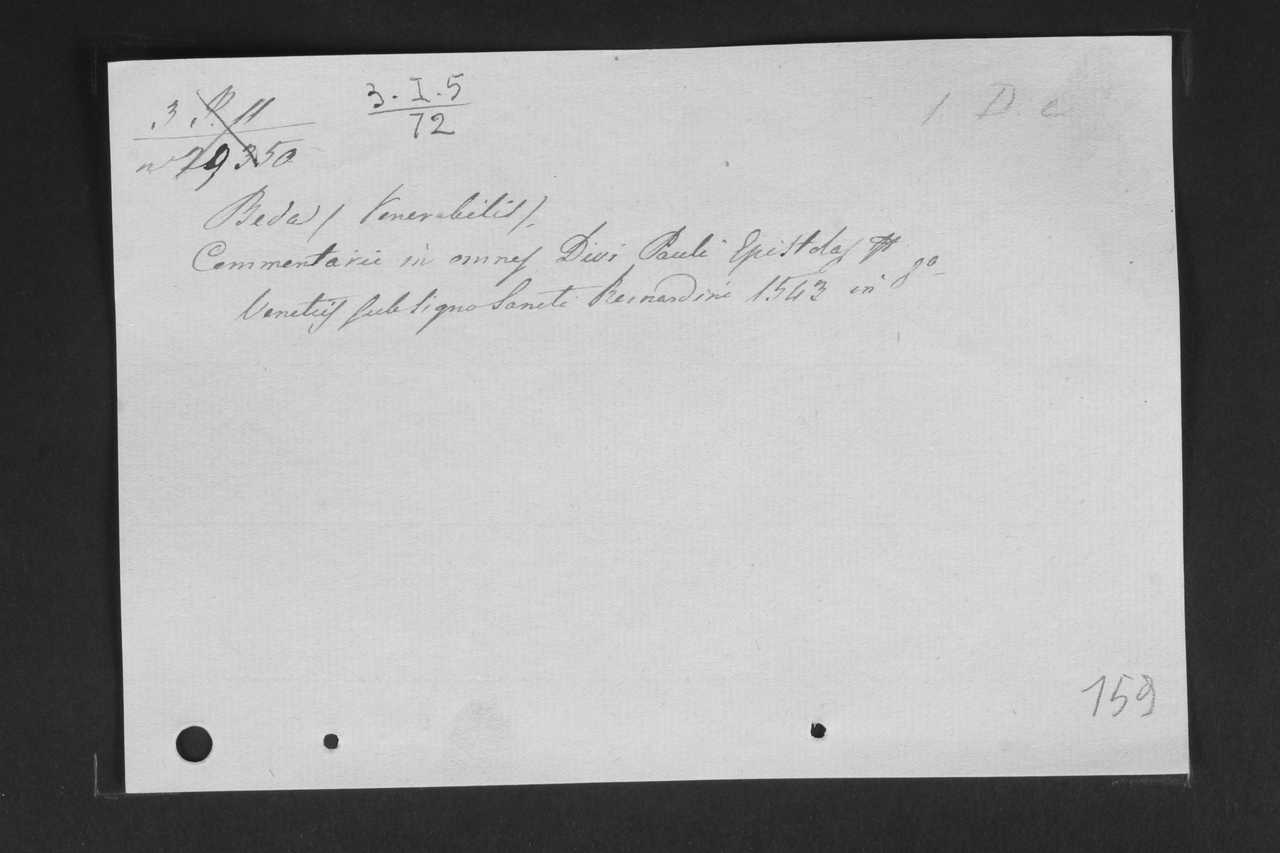 3 P. 11
nº 29350
3. I. 5
72
1 D c
Beda (Venerabilis).
Commentarii in omnes Divi Pauli Epistolas
Venetiis sub signo Sancti Bernardini 1543 in 8º
159